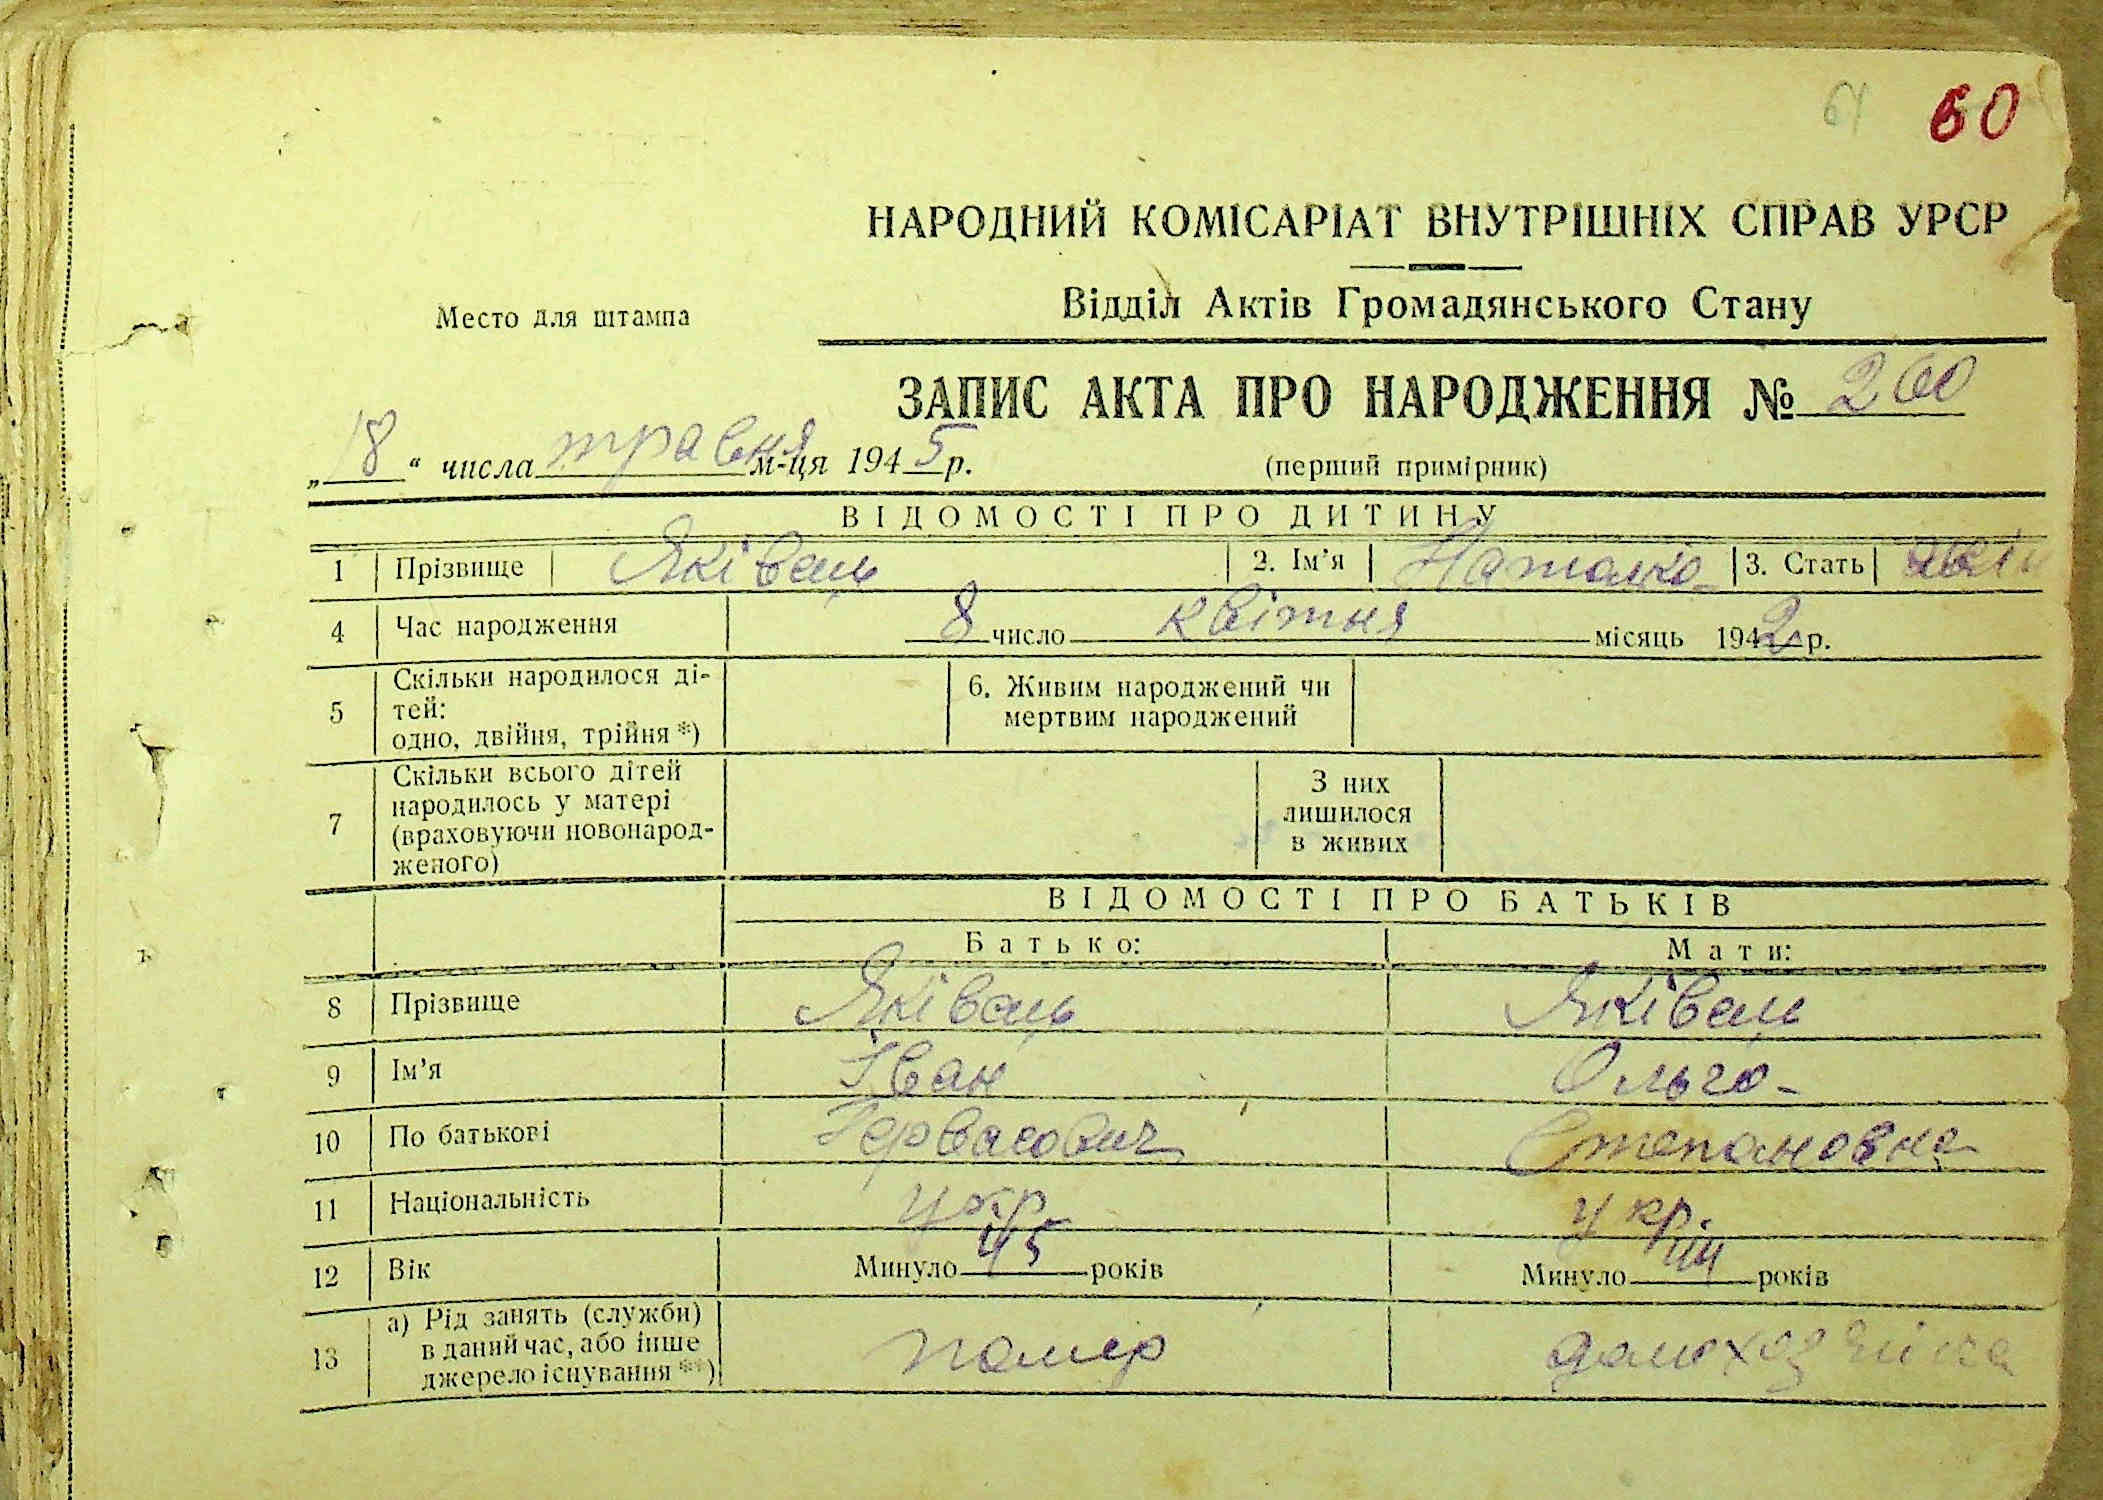 61 60
НАРОДНИЙ КОМІСАРІАТ ВНУТРІШНІХ СПРАВ УРСР
Место для штампа
Відділ Актів Громадянського Стану
ЗАПИС АКТА ПРО НАРОДЖЕННЯ № 260
„18“ числа травня м-ця 1945 р. (перший примірник)
ВІДОМОСТІ ПРО ДИТИНУ
1 Прізвище Яківець 2. Ім’я Наталка 3. Стать
4 Час народження 8 число квітня місяць 1942 р.
5 Скільки народилося ді-
тей:
одно, двійня, трійня *)
6. Живим народжений чи
мертвим народжений
7 Скільки всього дітей
народилось у матері
(враховуючи новонарод-
женого)
З них
лишилося
в живих
ВІДОМОСТІ ПРО БАТЬКІВ
Батько: Мати:
8 Прізвище Яківець Яківець
9 Ім’я Іван Ольга
10 По батькові Гервасович Степановна
11 Національність укр укр
12 Вік Минуло 45 років Минуло 44 років
13 а) Рід занять (служби)
в даний час, або інше
джерело існування **)
помер домохозяйка